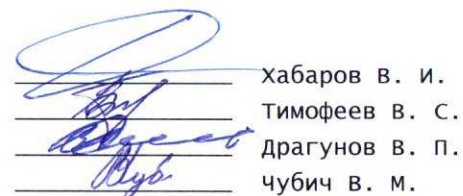 Хабаров В. И.
Тимофеев В. С.
Драгунов В. П.
Чубич В. М.